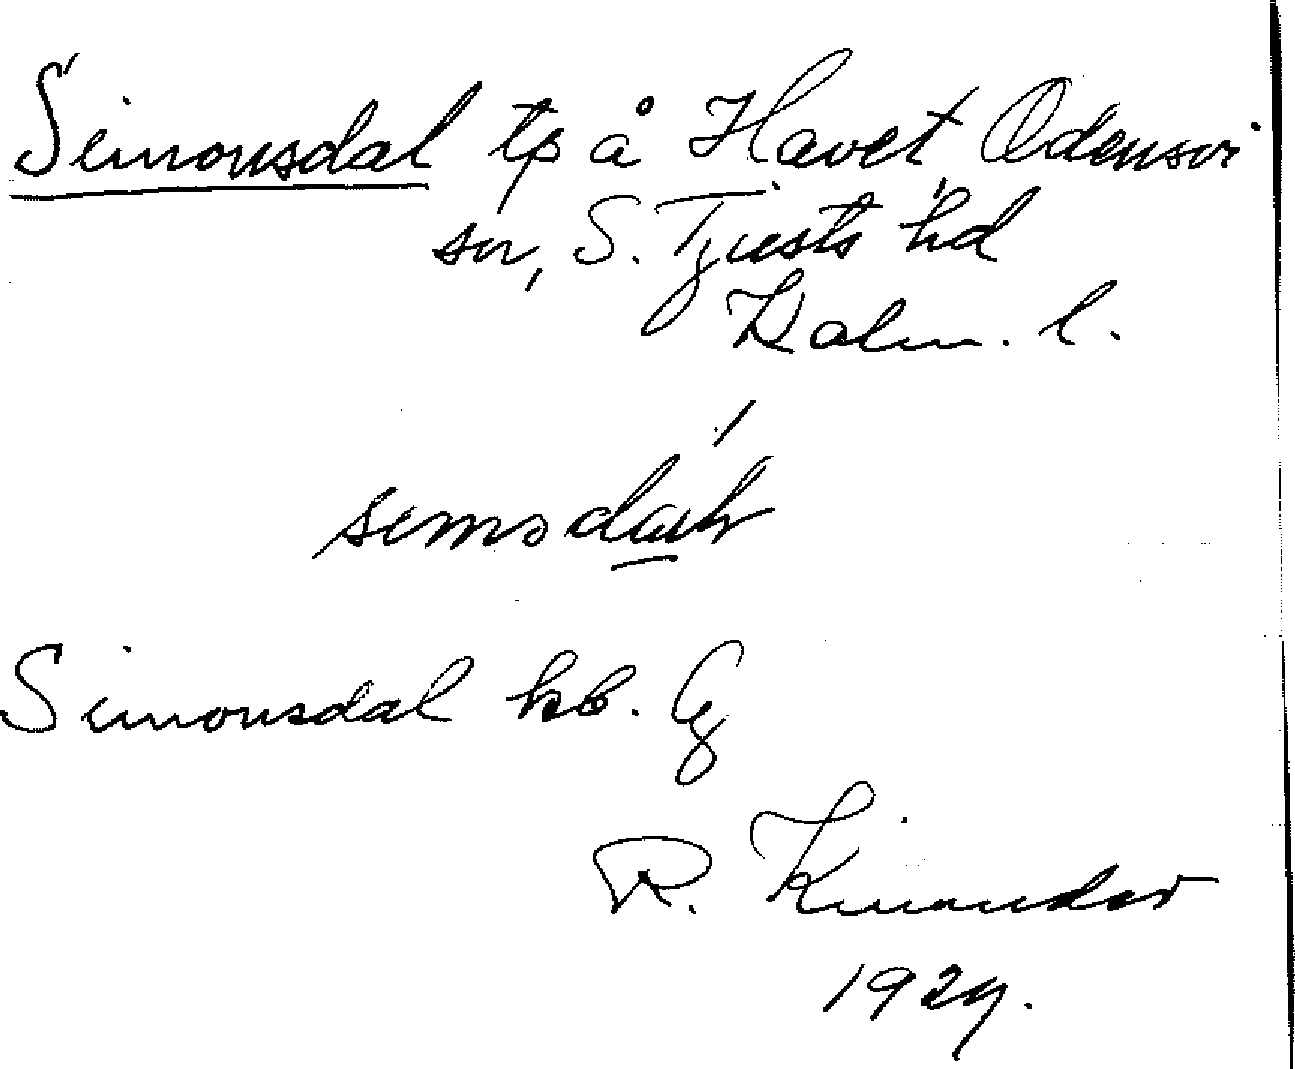 Simonsdal tp å Havet Odensvi
sn, S. Tjusts hd
Kalm. l.
Simonsdal kb.
R. Kinander
1929.